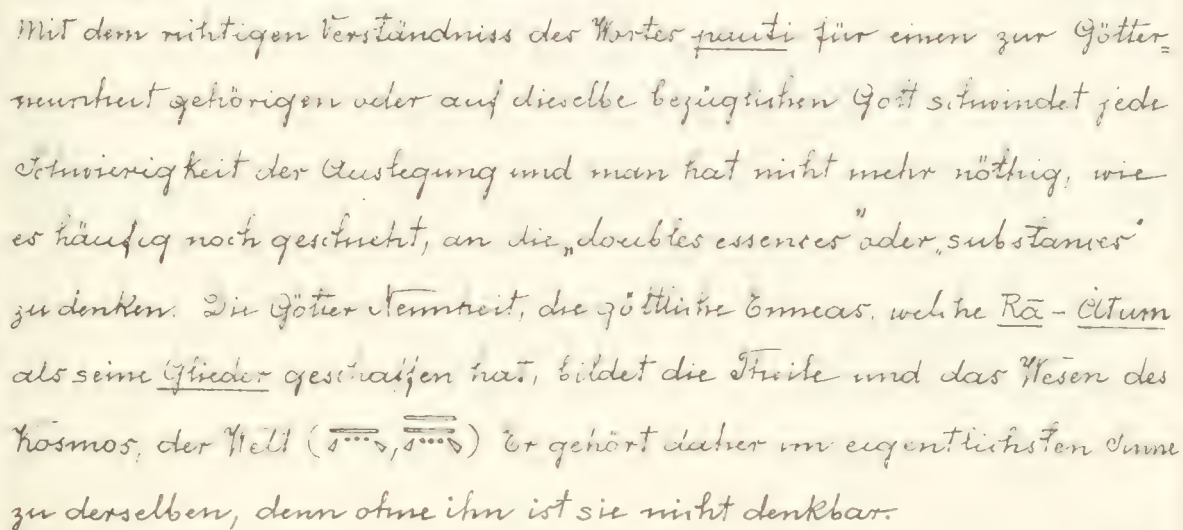 Mit dem richtigen Verständniss des Wortes pauti für einen zur Götter=
neunheit gehörigen oder auf dieselbe bezüglichen Gott schwindet jede
Schwierigkeit der Auslegung und man hat nicht mehr nöthig, wie
es häufig noch geschieht, an die „doubles essences" oder „substances"
zu denken. Die Götter Neunheit, die göttliche Enneas, welche Rā - Atum
als seine Glieder geschaffen hat, bildet die Theile und das Wesen des
Kosmos, der Welt ( , ) Er gehört daher im eigentlichsten Sinne
zu derselben, denn ohne ihn ist sie nicht denkbar.